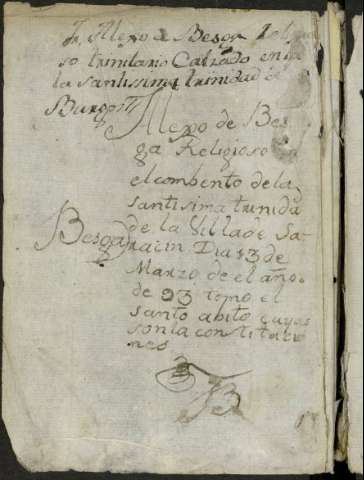 Fr. Alexo de Besga Religio
so trinitario Calzado en la
de la santissima trinidad de
Burgos
Alexo de Bes
ga Religioso en
el combento de la
santisima trinida
de la Villa de Sa
racin Dia 13 de
Marzo de el año
de 93 tomo el
santo abito cuyas
son la constitucio
nes
Besga
B